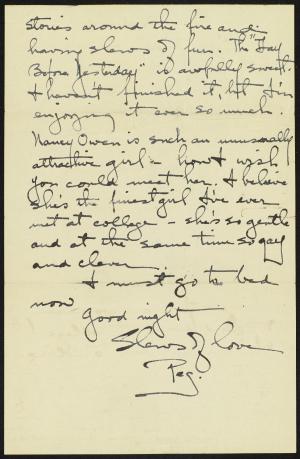 stories around the fire and
having slews of fun. The "Day
Before Yesterday" is awfully sweet.
I haven't finished it, but I'm
enjoying it ever so much.
Nancy Owen is such an unusually
attractive girl - how I wish
you could meet her. I believe
she's the finest girl I've ever
met at college - she's so gentle
and at the same time so gay
and clever.
I must go to bed
now
Good night
Slews of love
Peg.